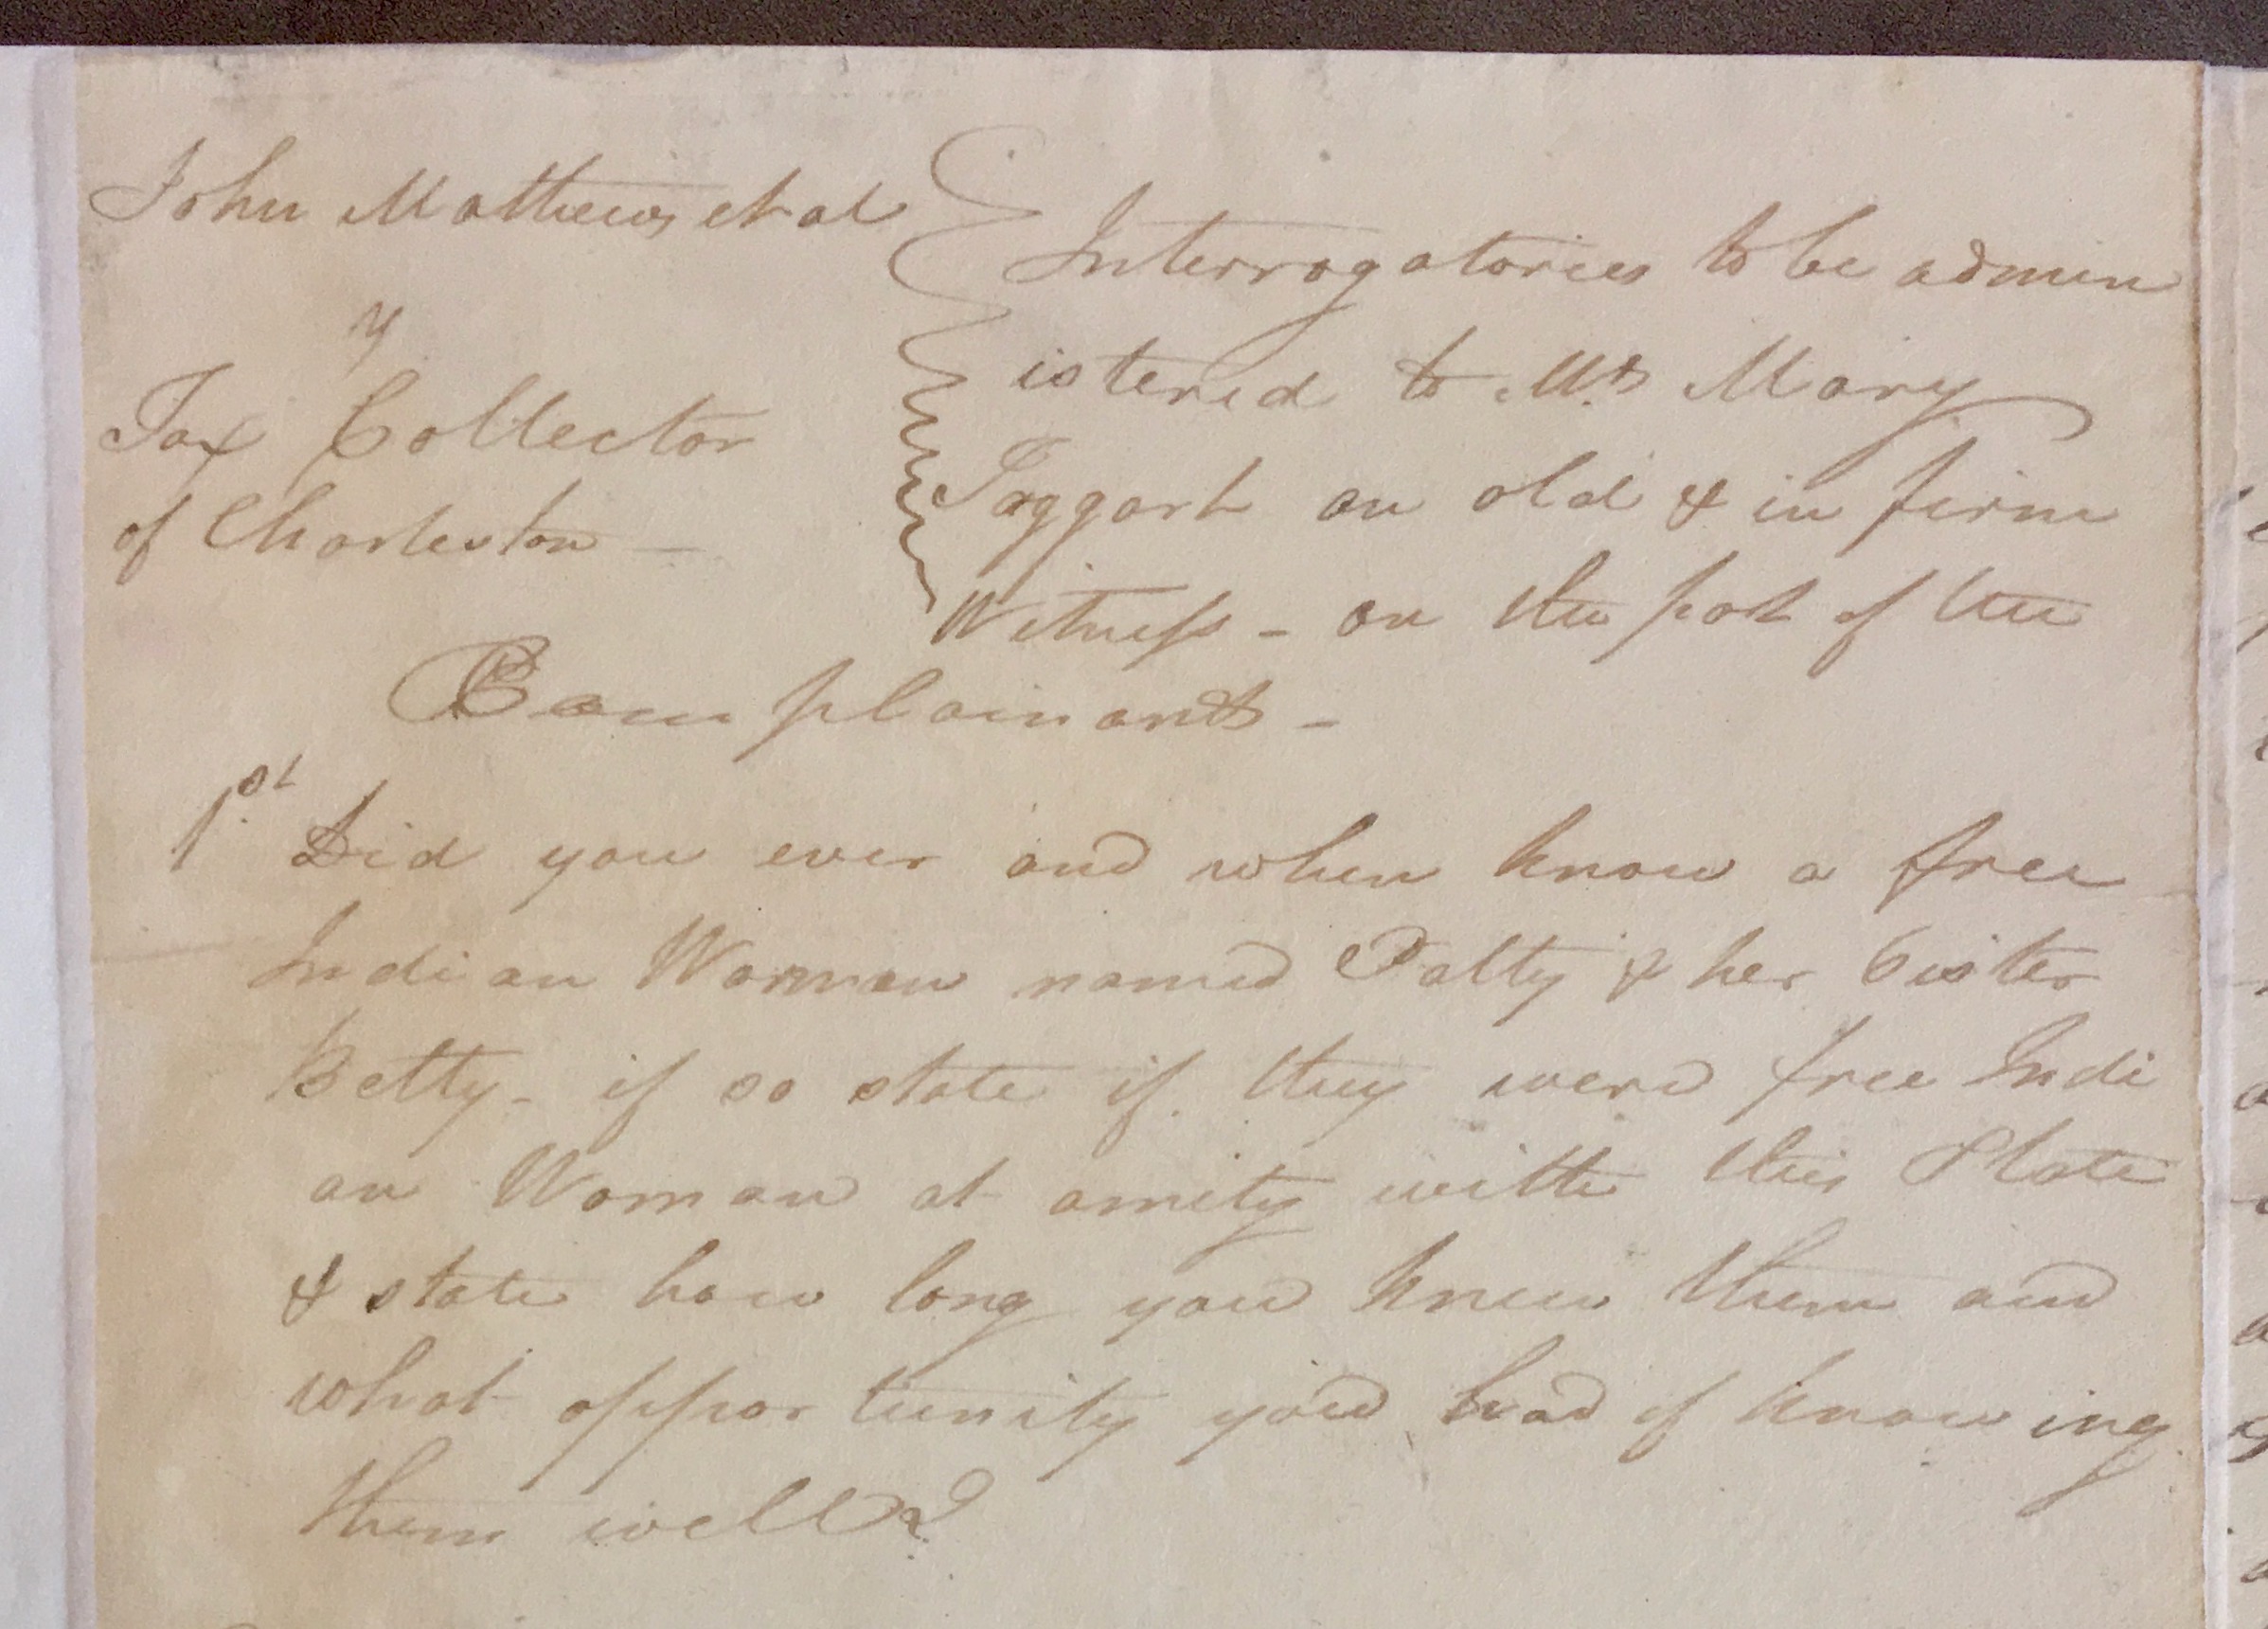 John Mathews et al
v
Tax Collector
of Charleston —
Interrogatories to be admin
istered to Mrs Mary
Taggart an old & in firm
Witness - on the part of the
Complainants -
1st. Did you ever and when know a free
Indian Woman named Patty & her Sister
Betty - if so state if they were free Indi
an Woman at amity with this State
& state how long you knew them and
what oppor tunity you had of know ing
them well?